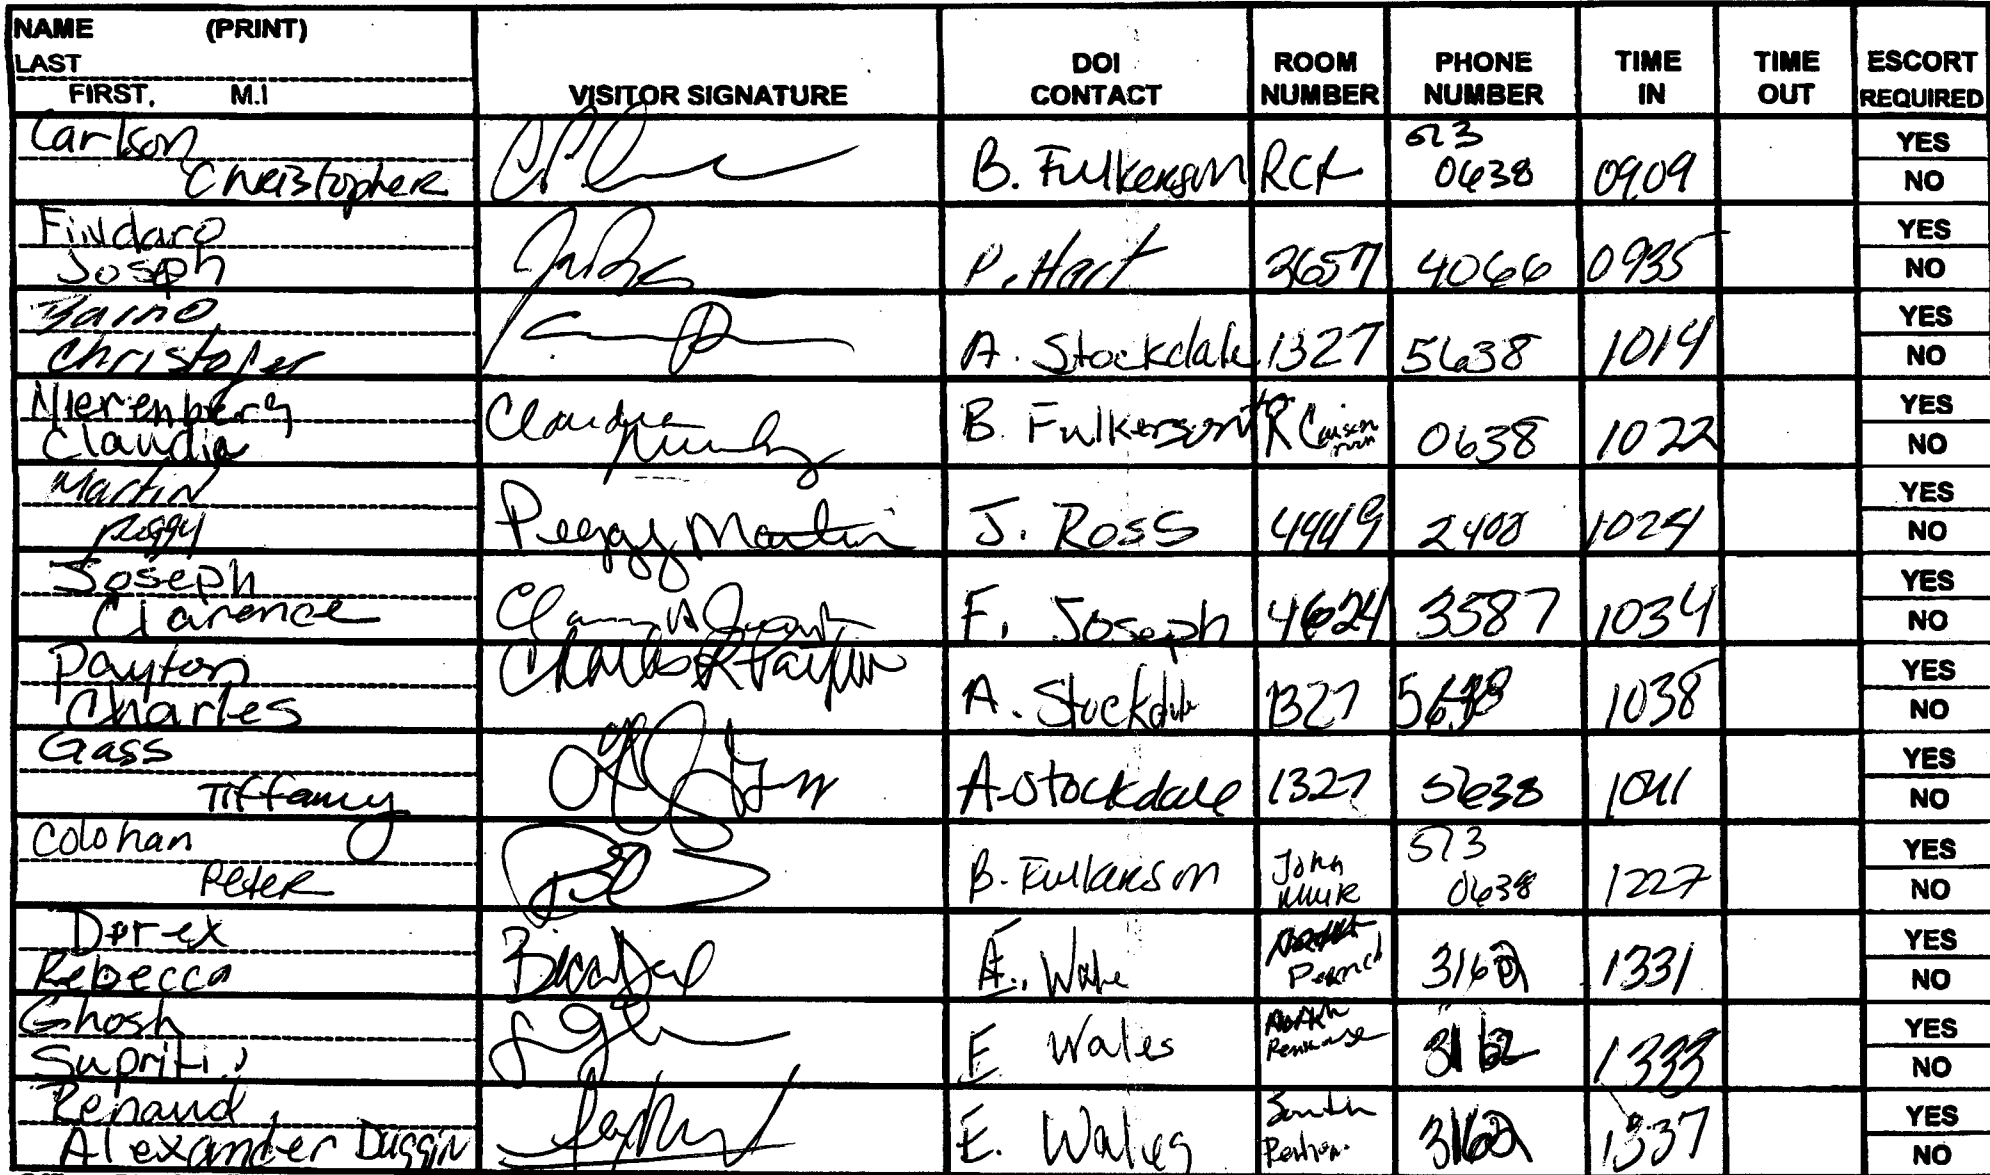 NAME (PRINT)
LAST
FIRST, M.I
VISITOR SIGNATURE
DOI CONTACT
ROOM NUMBER
PHONE NUMBER
TIME IN
TIME OUT
ESCORT REQUIRED
Carlson
Christopher
B. Fulkerson
513
0638
0909
YES
NO
Findaro
Joseph
P. Hart
3657
4066
0935
YES
NO
Christofer
A. Stockdale 1327 5638 1014
YES
NO
Nierenberg
Claudia
Claudia
B. Fulkerson
0638 1022
YES
NO
Martin
Peggy
Peggy Martin
J. Ross 4449 2408 1024
YES
NO
Joseph
Clarence
F. Joseph 4624 3587 1034
YES
NO
Payton
Charles
Charles R Payton
A. Stockdale 1327 1038
YES
NO
Gass
Tiffany
A. Stockdale 1327 5638 1041
YES
NO
Colohan
Peter
B. Fulkerson
John
Muir
513
0638
1227
YES
NO
Derex
Rebecca
E. Wale
3162 1331
YES
NO
Ghosh
Supriti
E Wales
North
3162 1333
YES
NO
Renaud
Alexander Duggin
E. Wales
South
3162 1337
YES
NO